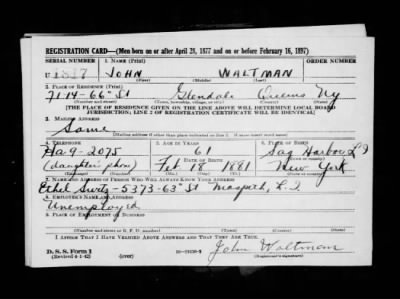 REGISTRATION CARD—(Men born on or after April 28, 1877 and on or before February 16, 1897)
SERIAL NUMBER 1. NAME (Print)
U 1817 JOHN WALTMAN
(First) (Middle) (Last)
2. PLACE OF RESIDENCE (Print)
71-14-66th St Glendale Queens Ny
(Number and street) (Town, township, village, or city) (County) (State)
[THE PLACE OF RESIDENCE GIVEN ON THE LINE ABOVE WILL DETERMINE LOCAL BOARD
JURISDICTION; LINE 2 OF REGISTRATION CERTIFICATE WILL BE IDENTICAL]
3. MAILING ADDRESS
Same
[Mailing address if other than place indicated on line 2. If same insert word same]
4. TELEPHONE 5. AGE IN YEARS 6. PLACE OF BIRTH
Ha 9-2075 61 Sag Harbor L I
DATE OF BIRTH
(daughter's phone) Feb 18 1881 New York
7. NAME AND ADDRESS OF PERSON WHO WILL ALWAYS KNOW YOUR ADDRESS
Ethel 53-73-63rd St Maspeth, L. I
8. EMPLOYER'S NAME AND ADDRESS
Unemployed
9. PLACE OF EMPLOYMENT OR BUSINESS
(Number and street or R. F. D. number) (Town) (County) (State)
I AFFIRM THAT I HAVE VERIFIED ABOVE ANSWERS AND THAT THEY ARE TRUE.
D. S. S. Form 1 John Waltman
(Revised 4-1-42) (over) (Registrant's signature)